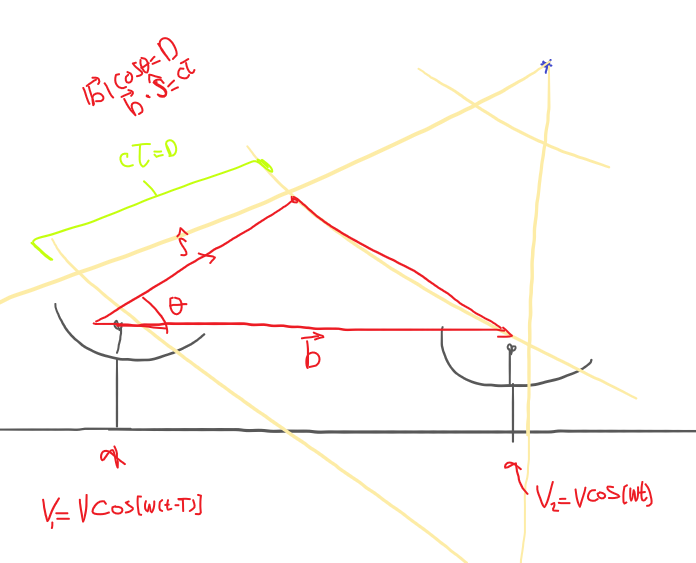 |b⃗|cosθ=D
b⃗·ŝ=cτ
cτ=D
ŝ
θ
b⃗
V₁=VCos[w(t-T)]
V₂=VCos(wt)